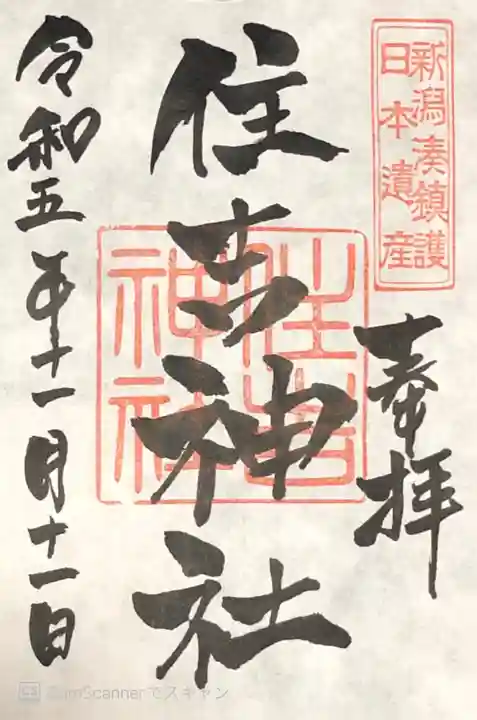 新潟湊鎮護
日本遺産
奉拝
住吉神社
住吉
神社
令和五年十一月十一日
CS CamScannerでスキャン